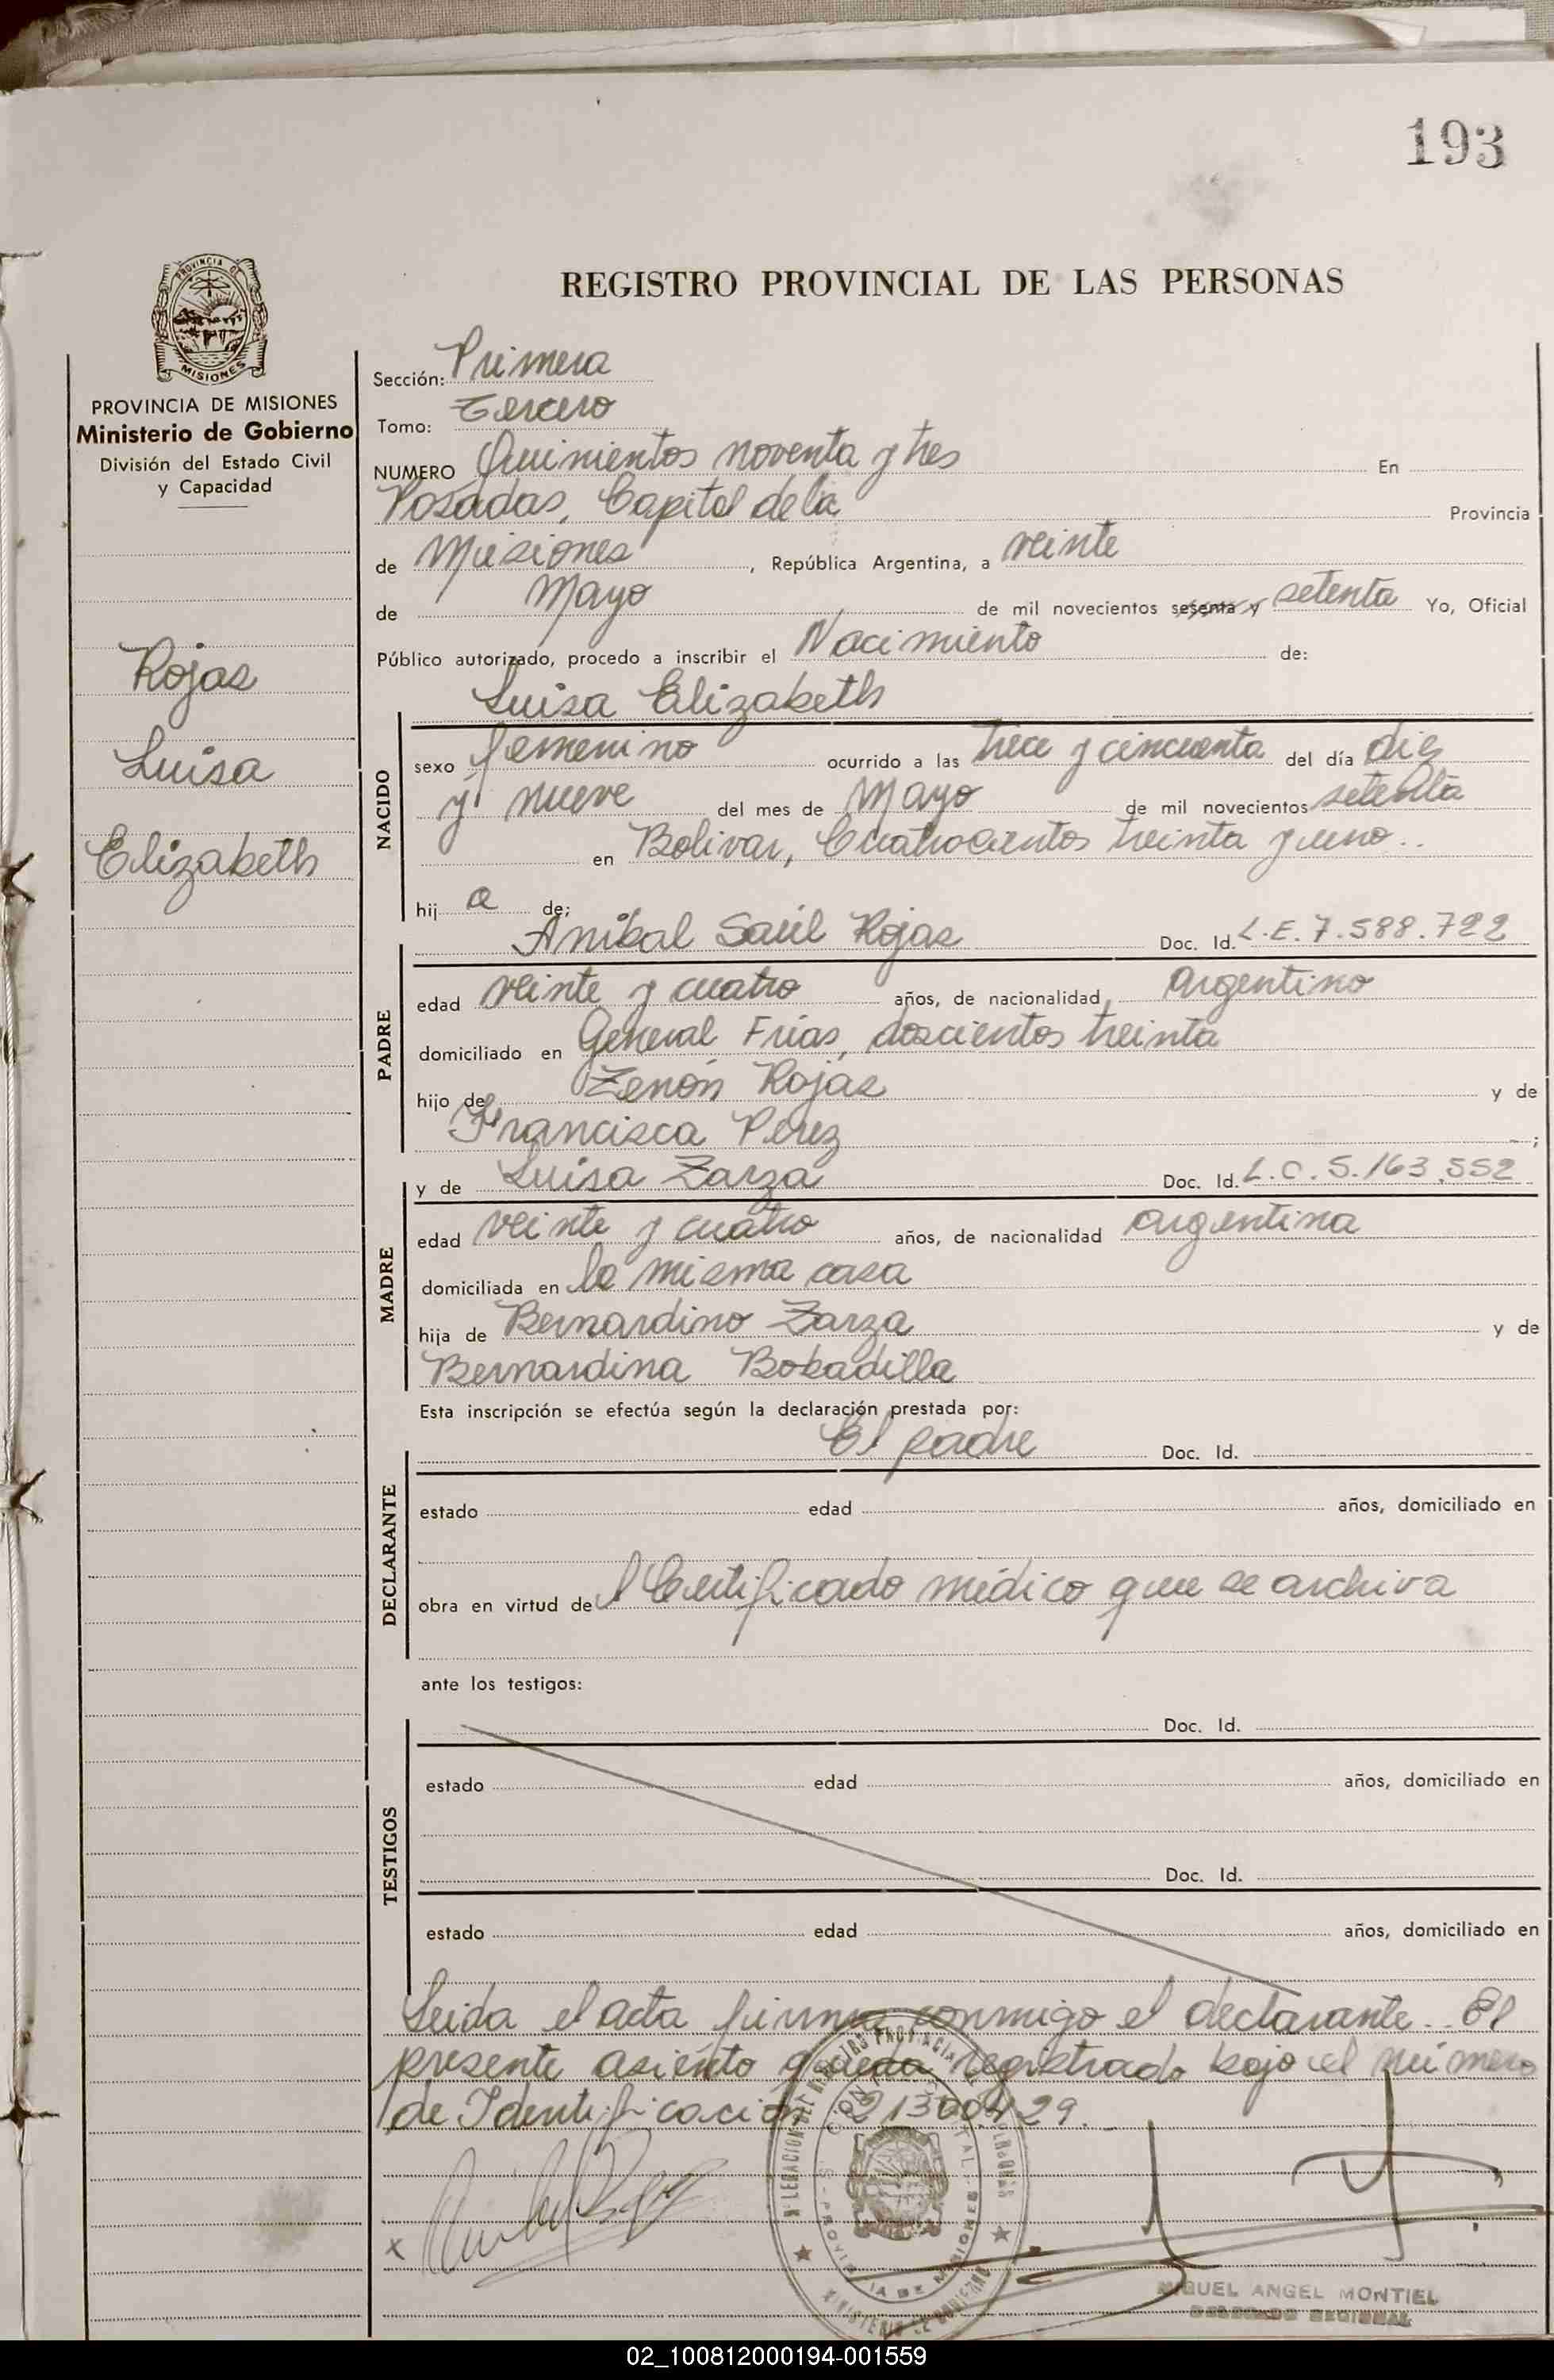 193
PROVINCIA DE
MISIONES
PROVINCIA DE MISIONES
Ministerio de Gobierno
División del Estado Civil
y Capacidad
Rojas
Luisa
Elizabeth
REGISTRO PROVINCIAL DE LAS PERSONAS
Sección: Primera
Tomo: Tercero
NUMERO Quinientos noventa y tres En
Posadas, Capital de la Provincia
de Misiones, República Argentina, a veinte
de Mayo de mil novecientos sesenta y setenta Yo, Oficial
Público autorizado, procedo a inscribir el Nacimiento de:
Luisa Elizabeth
NACIDO
sexo femenino ocurrido a las trece y cincuenta del día diez
y nueve del mes de Mayo de mil novecientos setenta
en Bolivar, Cuatrocientos treinta y uno..
hij a de:
Anibal Saúl Rojas Doc. Id. L.E. 7.588.722
PADRE
edad veinte y cuatro años, de nacionalidad argentino
domiciliado en General Frías, doscientos treinta
hijo de Zenón Rojas y de
Francisca Perez ;
y de Luisa Zarza Doc. Id. L.C. 5.163.552
MADRE
edad veinte y cuatro años, de nacionalidad argentina
domiciliada en la misma casa
hija de Bernardino Zarza y de
Bernardina Bobadilla
Esta inscripción se efectúa según la declaración prestada por:
El padre Doc. Id.
DECLARANTE
estado edad años, domiciliado en
obra en virtud del Certificado médico que se archiva
ante los testigos:
Doc. Id.
TESTIGOS
estado edad años, domiciliado en
Doc. Id.
estado edad años, domiciliado en
Leida el acta firma conmigo el declarante.. El
presente asiento queda registrado bajo el número
de Identificación 21300429.
x
MIGUEL ANGEL MONTIEL
DELEGADO REGIONAL
02_100812000194-001559